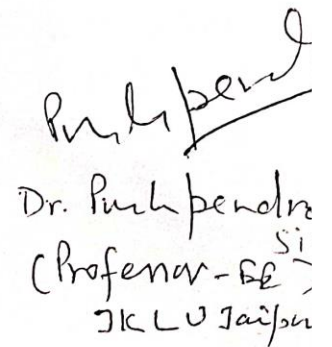 Pushpend
Dr. Pushpendra
Si
(Professor - EE)
JKLU Jaipur